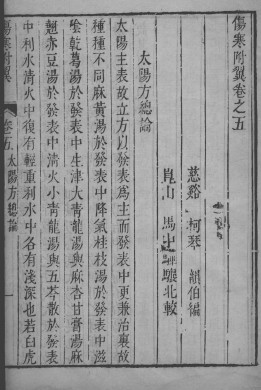 傷寒附翼卷之五
慈谿 柯琴 韻伯編
崑山 馬中驊驤北較
太陽方總論
太陽主表故立方以發表爲主而發表中更兼治裏故
種種不同麻黃湯於發表中降氣桂枝湯於發表中滋
陰乾葛湯於發表中生津大青龍湯與麻杏甘膏湯麻
翹赤豆湯於發表中清火小青龍湯與五苓散於發表
中利水清火中復有輕重利水中各有淺深也若白虎
傷寒附翼
卷五
太陽方總論
一